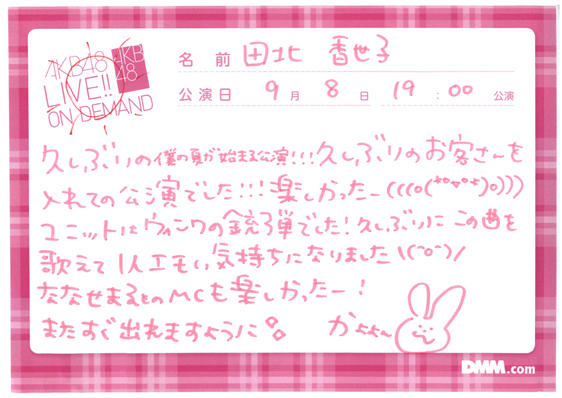 AKB48
LIVE!!
ON DEMAND
AKB
48
名 前 田北 香世子
公演日 9月 8日 19:00 公演
久しぶりの僕の夏が始まる公演!!!久しぶりのお客さんを
入れての公演でした!!!楽しかったー(((o(*°▽°*)o)))
ユニットはヴァンプの銃弾でした!久しぶりにこの曲を
歌えて1人エモい気持ちになりました\(^o^)/
ななせまるとのMCも楽しかったー!
またすぐ出れますように
かよよん
DMM.com